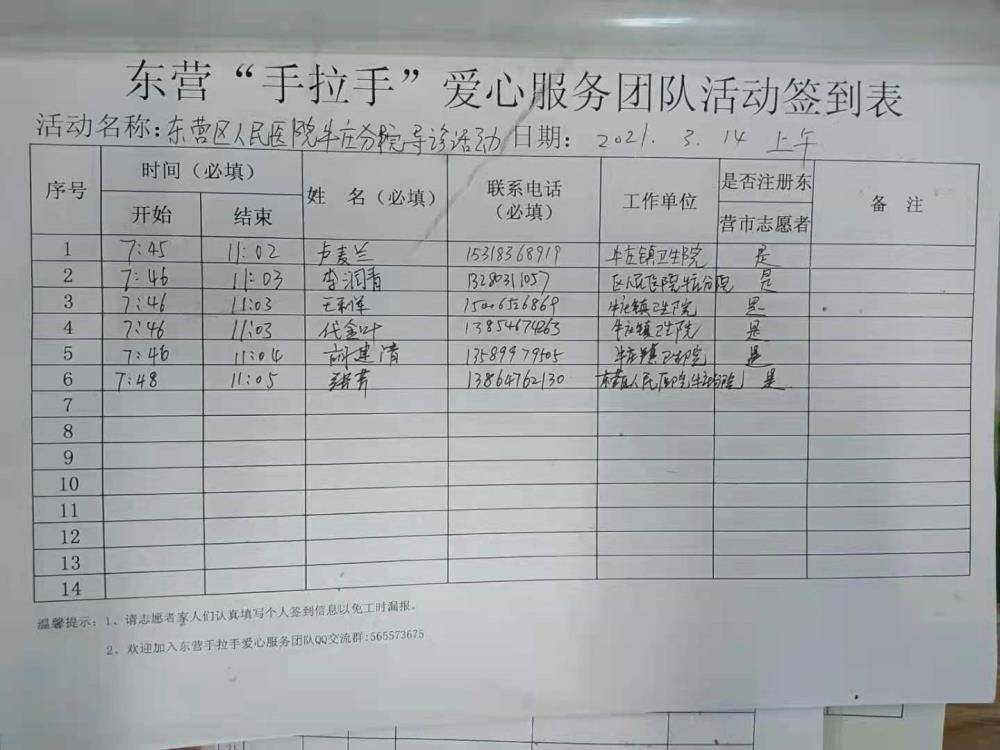 东营“手拉手”爱心服务团队活动签到表
活动名称:东营区人民医院牛庄分院导诊活动 日期: 2021. 3. 14 上午
序号 时间（必填） 姓 名（必填） 联系电话（必填） 工作单位 是否注册东营市志愿者 备 注
开始 结束
1 7:45 11:02 卢麦兰 15318368919 牛庄镇卫生院 是
2 7:46 11:03 李润青 13280311057 区人民医院牛庄分院 是
3 7:46 11:03 15006526869 牛庄镇卫生院 是
4 7:46 11:03 代金叶 13854674263 牛庄镇卫生院 是
5 7:46 11:04 胡建清 13589979505 牛庄镇卫生院 是
6 7:48 11:05 13864762130 东营区人民医院牛庄分院 是
7
8
9
10
11
12
13
14
温馨提示: 1、请志愿者家人们认真填写个人签到信息以免工时漏报。
2、欢迎加入东营手拉手爱心服务团队QQ交流群:565573675